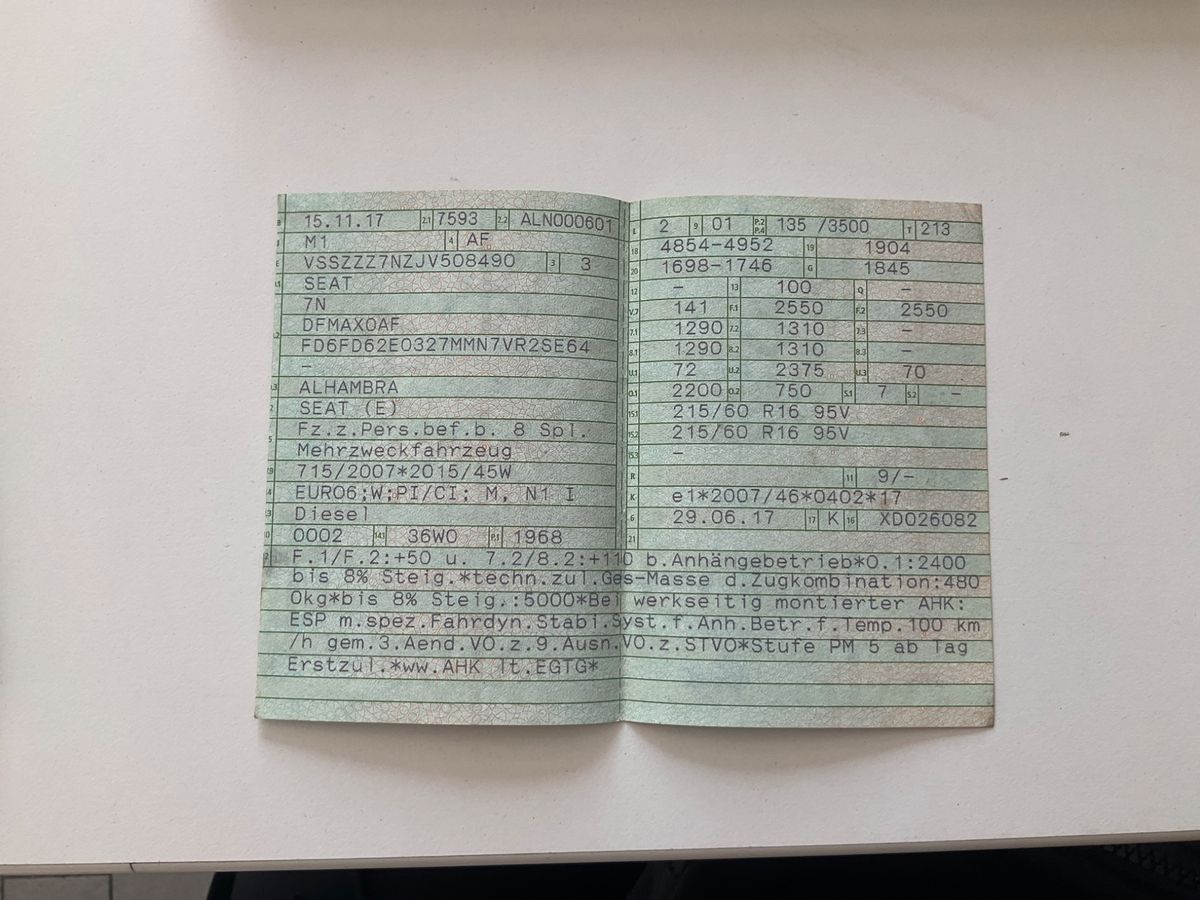 B 15.11.17 2.1 7593 2.2 ALN000601
J M1 4 AF
E VSSZZZ7NZJV508490 3 3
SEAT
7N
DFMAX0AF
FD6FD62E0327MMN7VR2SE64
–
ALHAMBRA
SEAT (E)
Fz.z.Pers.bef.b. 8 Spl.
Mehrzweckfahrzeug
715/2007*2015/45W
EURO6;W;PI/CI; M, N1 I
Diesel
0002 14.1 36W0 P.1 1968
L 2 9 01 P.2 P.4 135 /3500 T 213
18 4854–4952 19 1904
20 1698–1746 G 1845
12 – 13 100 Q –
V.7 141 F.1 2550 F.2 2550
7.1 1290 7.2 1310 7.3 –
8.1 1290 8.2 1310 8.3 –
U.1 72 U.2 2375 U.3 70
O.1 2200 O.2 750 S.1 7 S.2 –
15.1 215/60 R16 95V
15.2 215/60 R16 95V
15.3 –
R 11 9/–
K e1*2007/46*0402*17
6 29.06.17 17 K 16 XD026082
21
F.1/F.2:+50 u. 7.2/8.2:+110 b.Anhängebetrieb*O.1:2400
bis 8% Steig.*techn.zul.Ges–Masse d.Zugkombination:480
0kg*bis 8% Steig.:5000*Bei werkseitig montierter AHK:
ESP m.spez.Fahrdyn.Stabi.Syst.f.Anh.Betr.f.Temp.100 km
/h gem.3.Aend.VO.z.9.Ausn.VO.z.STVO*Stufe PM 5 ab Tag
Erstzul.*ww.AHK lt.EGTG*